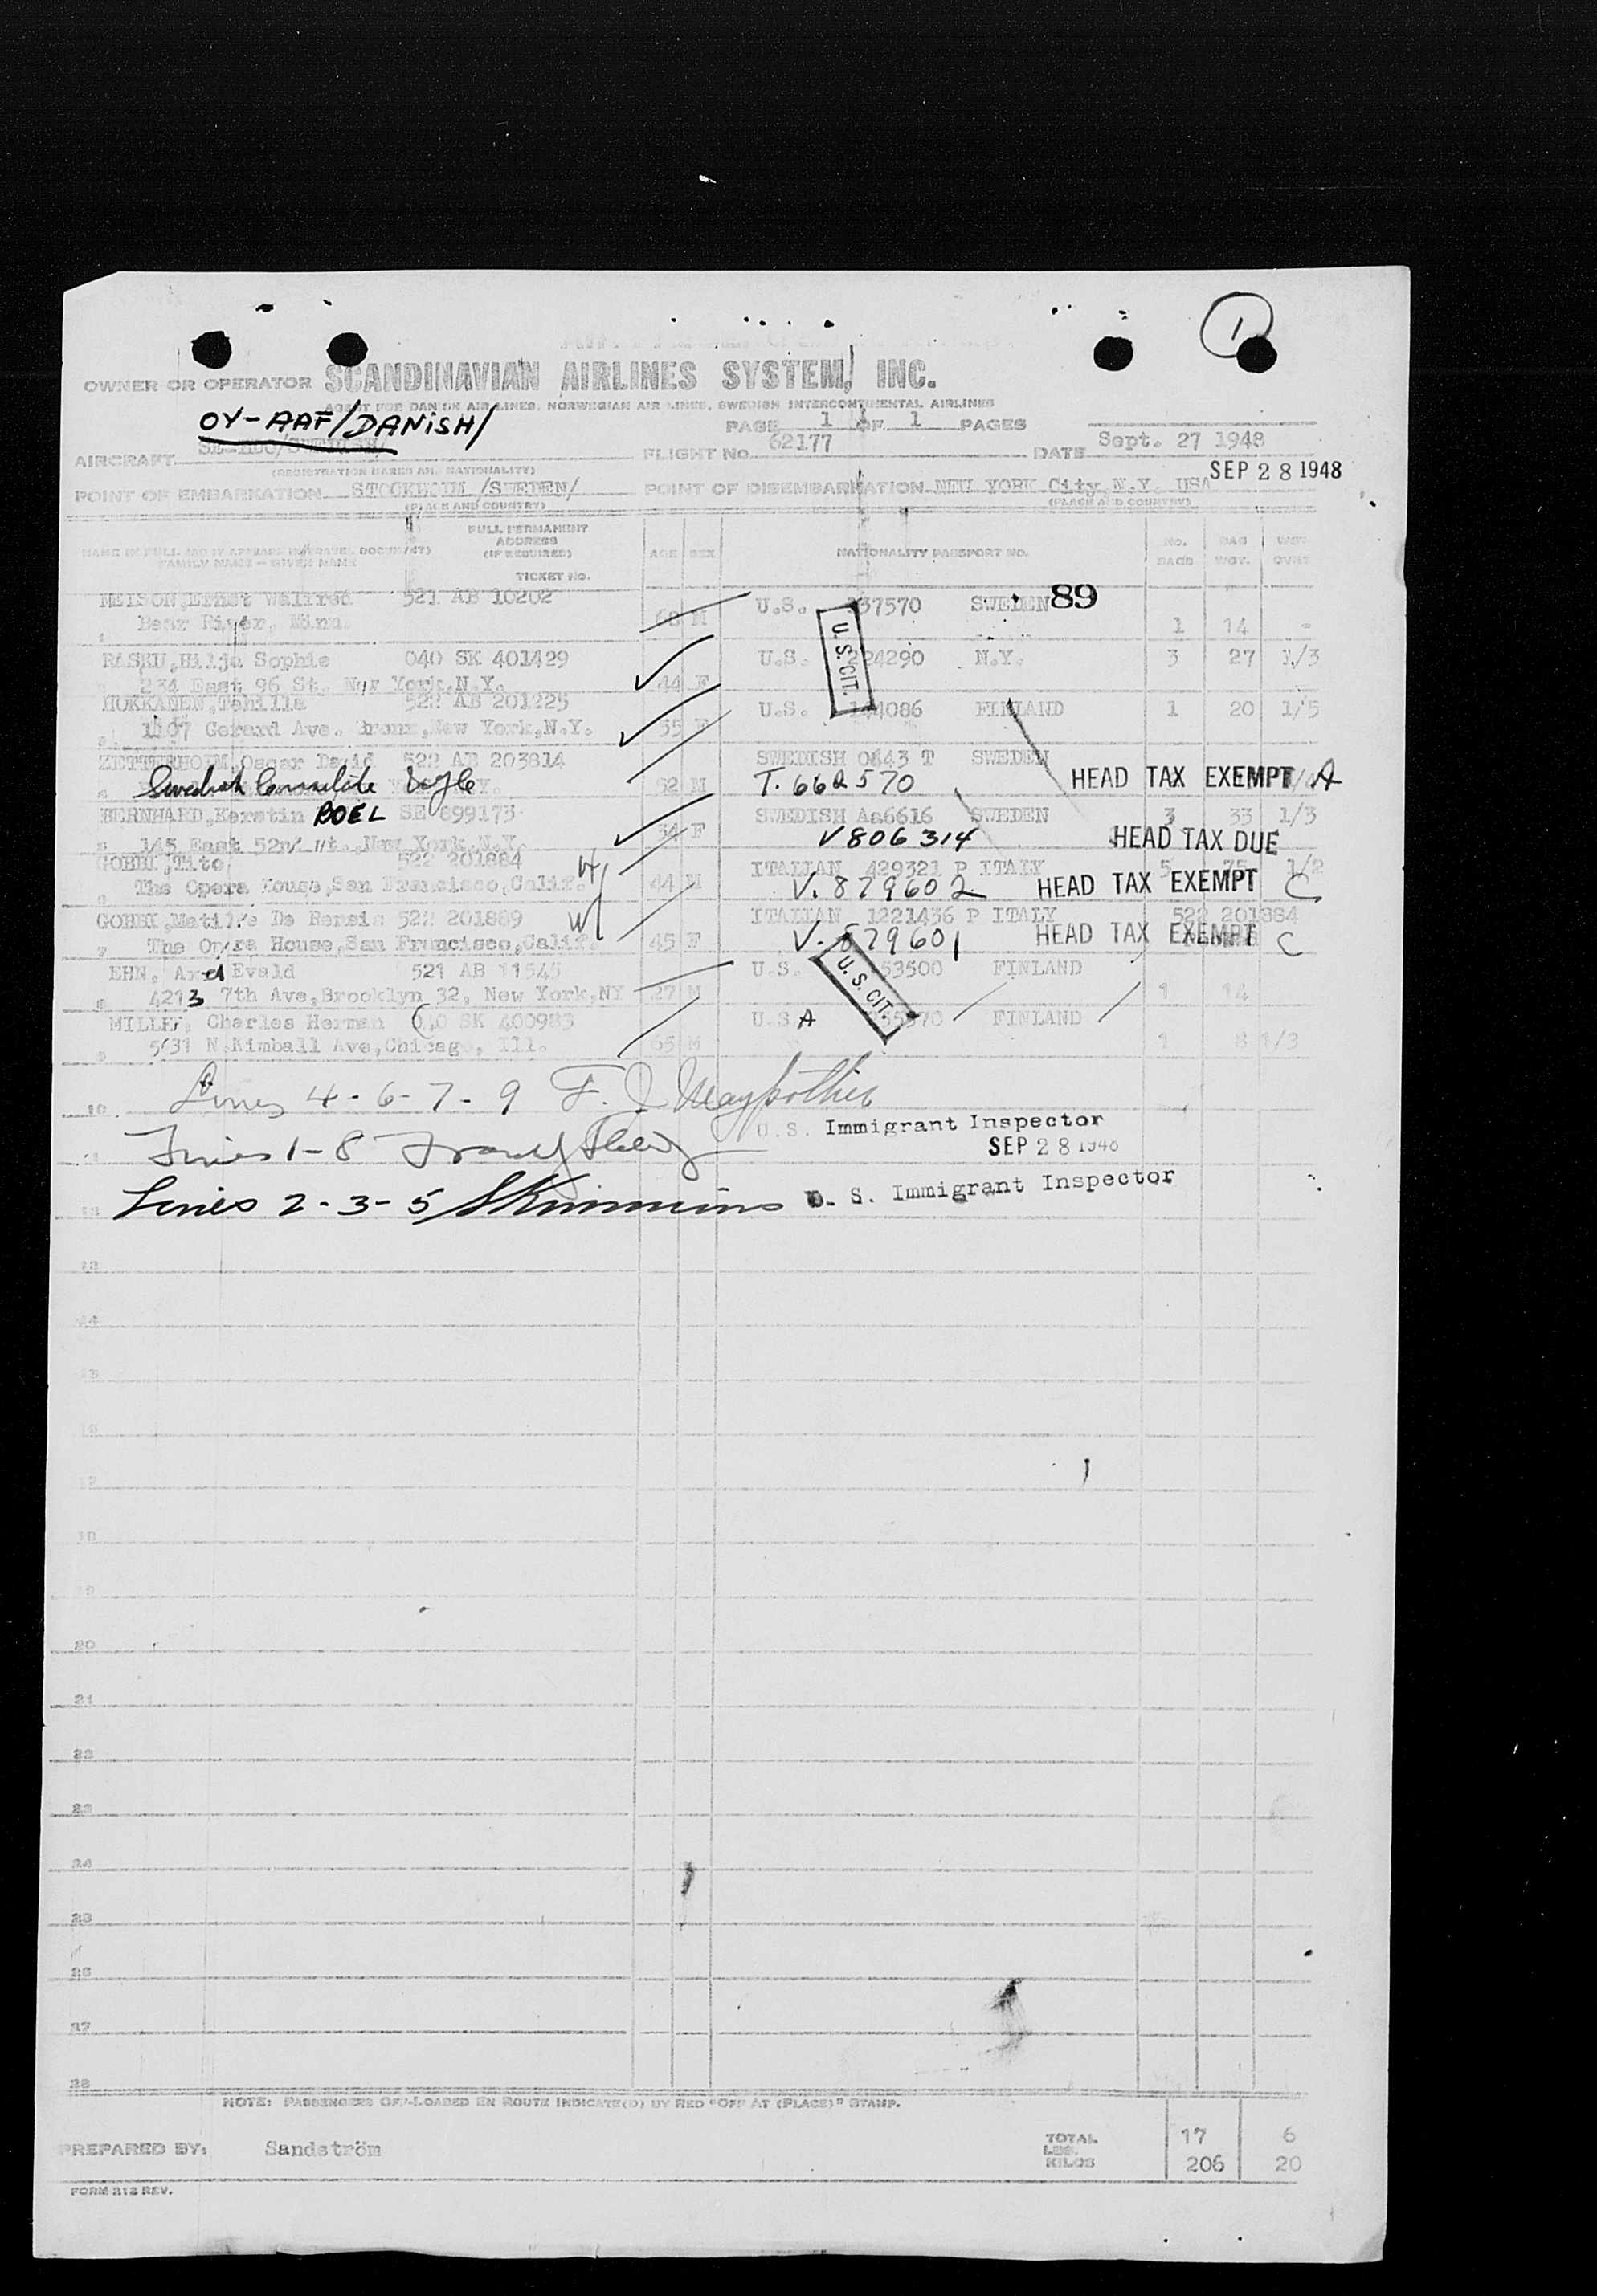 1
OWNER OR OPERATOR SCANDINAVIAN AIRLINES SYSTEM, INC.
AGENT FOR DANISH AIR LINES, NORWEGIAN AIR LINES, SWEDISH INTERCONTINENTAL AIRLINES
OY-AAF/DANISH/
PAGE 1 OF 1 PAGES
AIRCRAFT
FLIGHT No. 62177 DATE Sept. 27 1948
(REGISTRATION MARKS AND NATIONALITY)
SEP 28 1948
POINT OF EMBARKATION STOCKHOLM /SWEDEN/ POINT OF DISEMBARKATION NEW YORK City, N.Y. USA
(PLACE AND COUNTRY) (PLACE AND COUNTRY)
NAME IN FULL (AS IT APPEARS IN TRAVEL DOCUMENT) FULL PERMANENT ADDRESS (IF REQUIRED) AGE SEX NATIONALITY PASSPORT NO. No. BAGS BAG WGT.
FAMILY NAME - GIVEN NAME TICKET No.
NELSON, Ernst Walfred 521 AB 10202 U.S. 37570 SWEDEN 89
Bear River, Minn. 68 M 1 14 -
RASKU, Hilja Sophie 040 SK 401429 U.S. 224290 N.Y. 3 27 1/3
234 East 96 St. New York, N.Y. 44 F
U.S. CIT.
HOKKANEN, 522 AB 201225 U.S. 4086 FINLAND 1 20 1/5
1107 Gerard Ave. Bronx, New York, N.Y. 55 F
ZETTERHOLM, Oscar David 522 AB 203814 SWEDISH 0643 T SWEDEN
Swedish Consulate 52 M T. 662570 HEAD TAX EXEMPT A
BERNHARD, Kerstin BOEL SE 899173 SWEDISH Aa6616 SWEDEN 3 33 1/3
145 East 52nd St., New York, N.Y. 34 F V806314 HEAD TAX DUE
GOBBI, Tito 522 201884 ITALIAN 429321 P ITALY 5 75 1/2
The Opera House, San Francisco, Calif. 44 M V. 879602 HEAD TAX EXEMPT C
GOBBI, Matilde De Rensis 522 201889 ITALIAN 1221436 P ITALY 522 201884
The Opera House, San Francisco, Calif. 45 F V. 879601 HEAD TAX EXEMPT C
EHN, Axel Evald 521 AB 11545 U.S. 53500 FINLAND
4213 7th Ave, Brooklyn 32, New York, NY 27 M 1 14
U. S. CIT.
MILLER, Charles Herman 040 SK 400983 U.S.A FINLAND
5731 N Kimball Ave, Chicago, Ill. 65 M 1 8 1/3
10 Lines 4-6-7-9 F. J.
U.S. Immigrant Inspector
11 Lines 1-8
SEP 28 1948
12 Lines 2-3-5 U. S. Immigrant Inspector
13
14
15
16
17
18
19
20
21
22
23
24
25
26
27
28
NOTE: PASSENGERS OFF-LOADED EN ROUTE INDICATE(D) BY RED "OFF AT (PLACE)" STAMP.
PREPARED BY: Sandström TOTAL 17 6
LBS.
KILOS 206 20
FORM 212 REV.